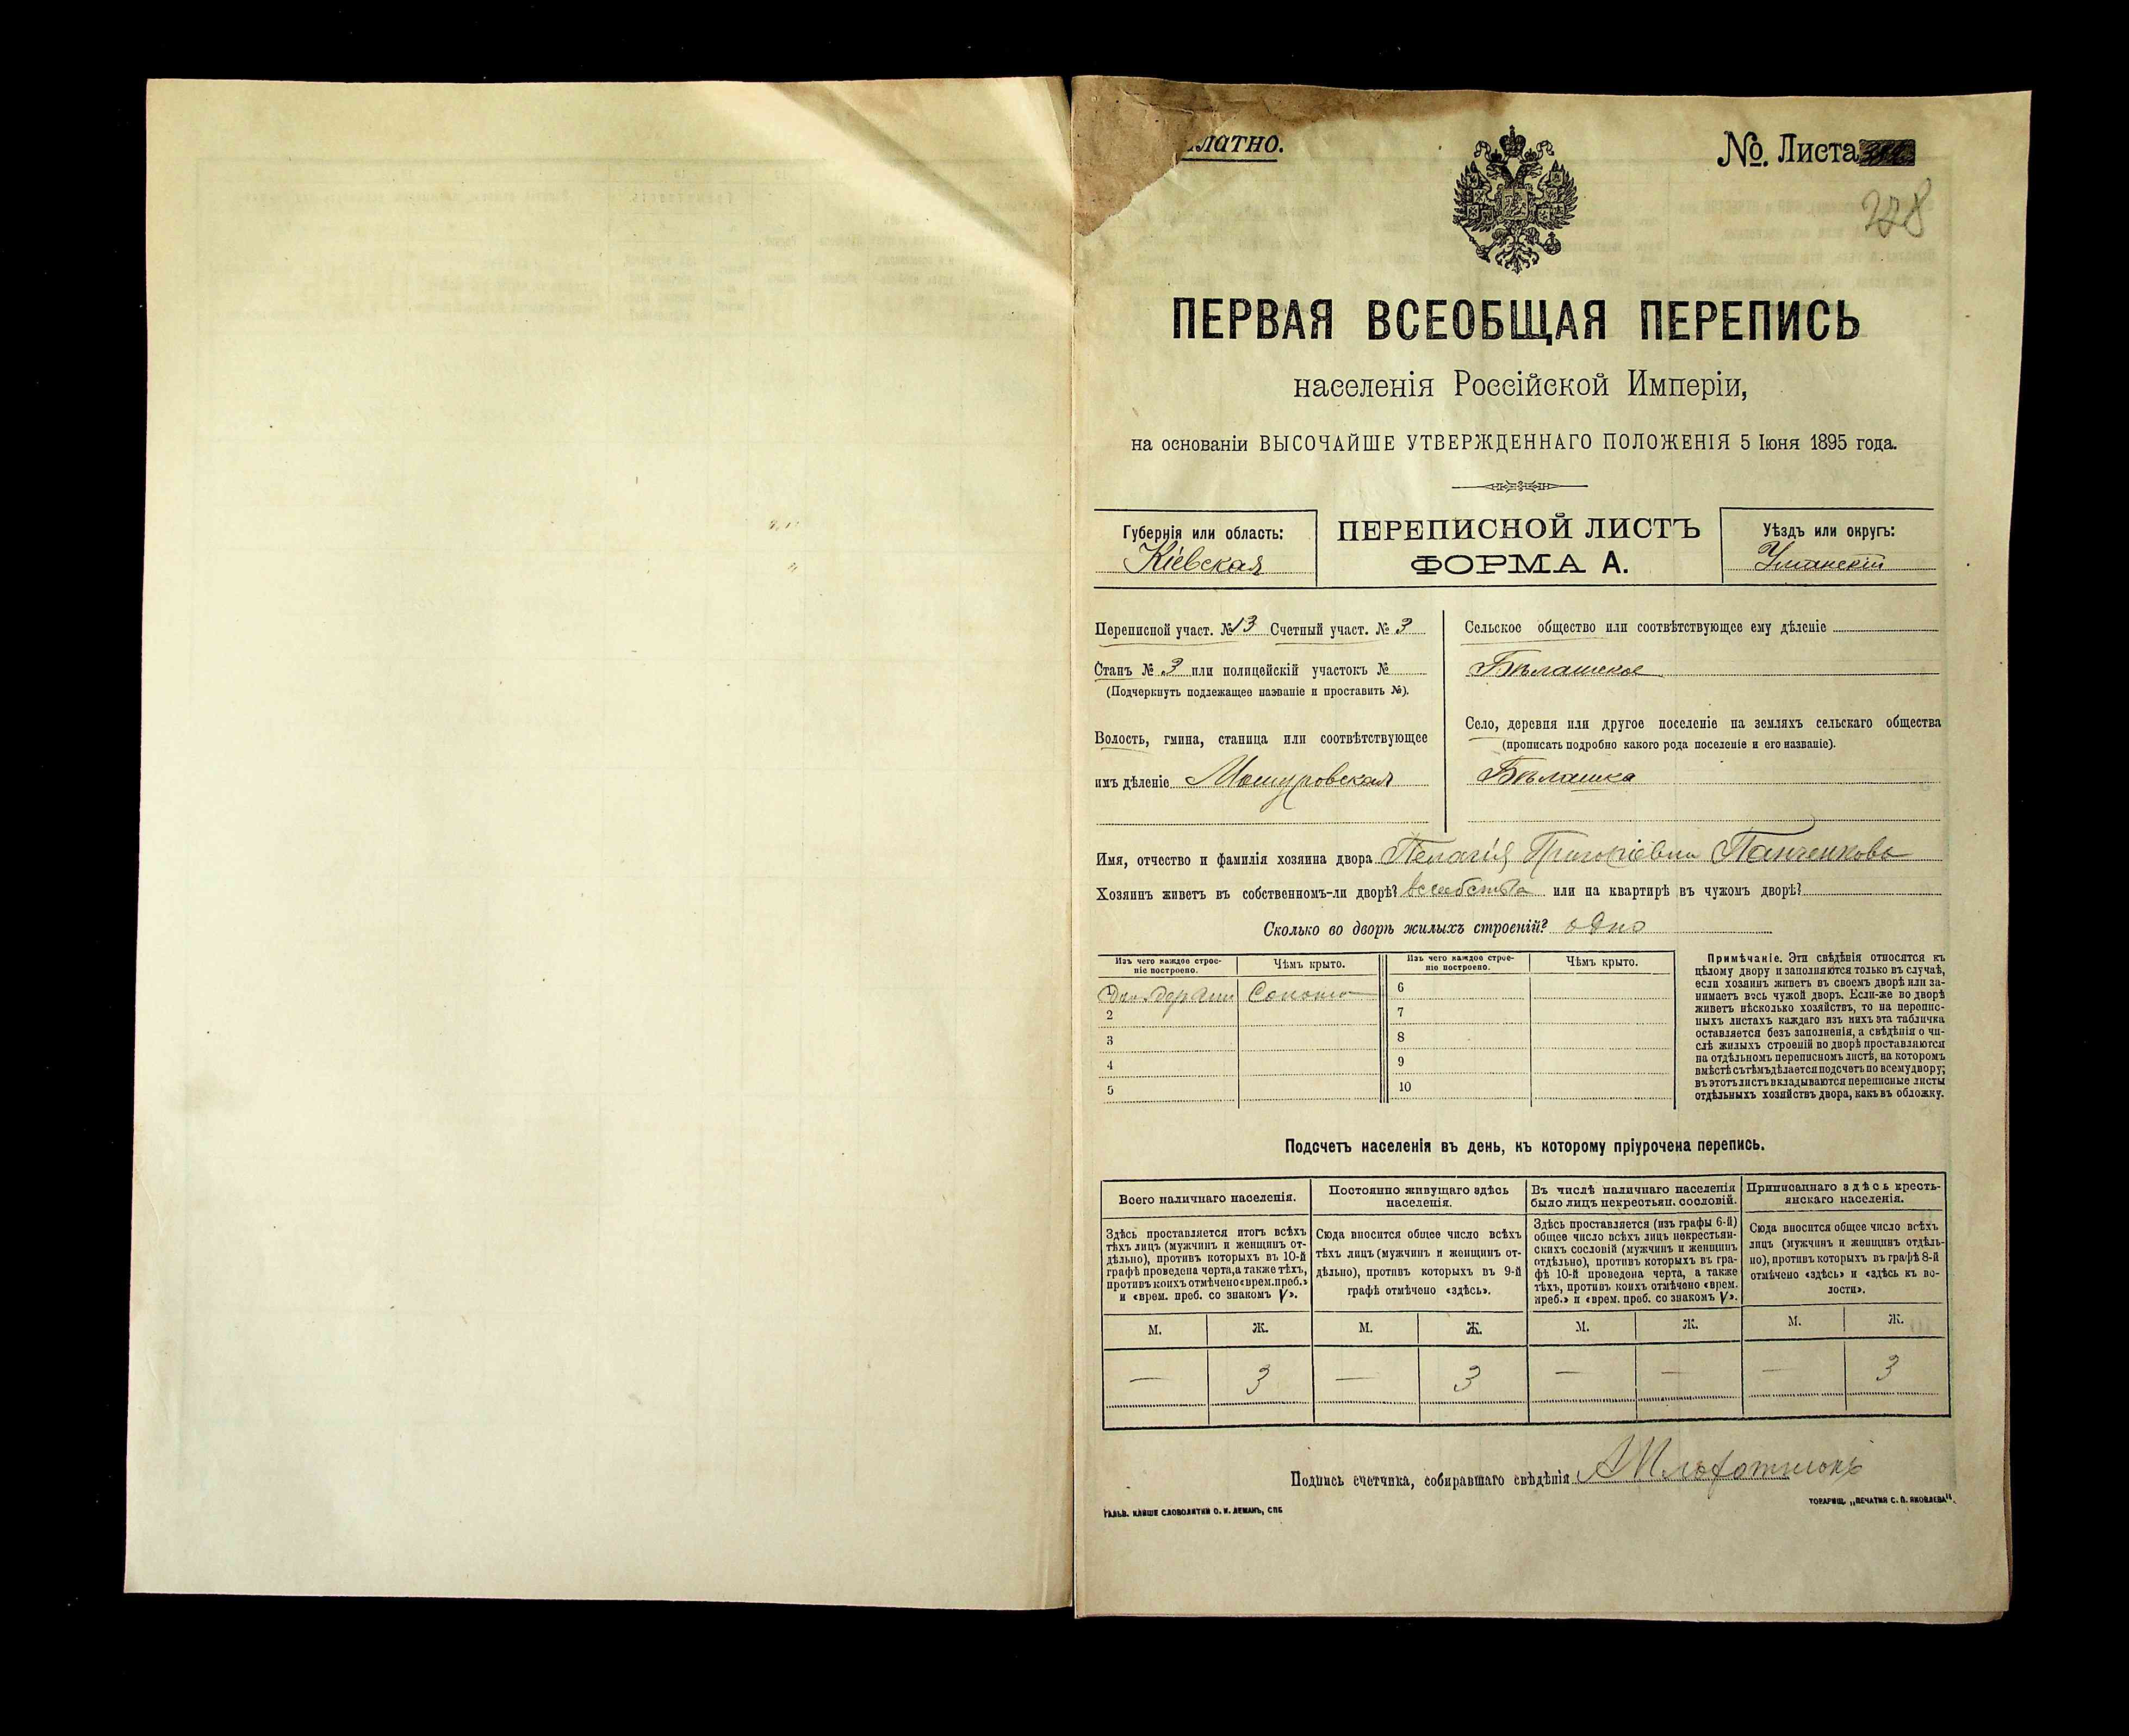 латно.
№. Листа
228
ПЕРВАЯ ВСЕОБЩАЯ ПЕРЕПИСЬ
населенія Россійской Имперіи,
на основаніи ВЫСОЧАЙШЕ УТВЕРЖДЕННАГО ПОЛОЖЕНІЯ 5 Іюня 1895 года.
Губернія или область:
Кіевская
ПЕРЕПИСНОЙ ЛИСТЪ
ФОРМА А.
Уѣздъ или округъ:
Уманскій
Переписной участ. № 13 Счетный участ. № 3
Станъ № 3 или полицейскій участокъ №
(Подчеркнуть подлежащее названіе и проставить №).
Волость, гмина, станица или соотвѣтствующее
имъ дѣленіе Машуровская
Сельское общество или соотвѣтствующее ему дѣленіе
Бѣлашское
Село, деревня или другое поселеніе на земляхъ сельскаго общества
(прописать подробно какого рода поселеніе и его названіе).
Бѣлашка
Имя, отчество и фамилія хозяина двора Пелагія Григоріевна Панченкова
Хозяинъ живетъ въ собственномъ-ли дворѣ? или на квартирѣ въ чужомъ дворѣ?
Сколько во дворѣ жилыхъ строеній? одно
Изъ чего каждое строе-
ніе построено.
Чѣмъ крыто.
Изъ чего каждое строе-
ніе построено.
Чѣмъ крыто.
1 Соломою 6
2 7
3 8
4 9
5 10
Примѣчаніе. Эти свѣдѣнія относятся къ
цѣлому двору и заполняются только въ случаѣ,
если хозяинъ живетъ въ своемъ дворѣ или за-
нимаетъ весь чужой дворъ. Если-же во дворѣ
живетъ нѣсколько хозяйствъ, то на перепис-
ныхъ листахъ каждаго изъ нихъ эта табличка
оставляется безъ заполненія, а свѣдѣнія о чи-
слѣ жилыхъ строеній во дворѣ проставляются
на отдѣльномъ переписномъ листѣ, на которомъ
вмѣстѣ съ тѣмъ дѣлается подсчетъ по всему двору;
въ этотъ листъ вкладываются переписные листы
отдѣльныхъ хозяйствъ двора, какъ въ обложку.
Подсчетъ населенія въ день, къ которому пріурочена перепись.
Всего наличнаго населенія.
Здѣсь проставляется итогъ всѣхъ
тѣхъ лицъ (мужчинъ и женщинъ от-
дѣльно), противъ которыхъ въ 10-й
графѣ проведена черта, а также тѣхъ,
противъ коихъ отмѣчено «врем. преб.»
и «врем. преб. со знакомъ V».
Постоянно живущаго здѣсь
населенія.
Сюда вносится общее число всѣхъ
тѣхъ лицъ (мужчинъ и женщинъ от-
дѣльно), противъ которыхъ въ 9-й
графѣ отмѣчено «здѣсь».
Въ числѣ наличнаго населенія
было лицъ некрестьян. сословій.
Здѣсь проставляется (изъ графы 6-й)
общее число всѣхъ лицъ некрестьян-
скихъ сословій (мужчинъ и женщинъ
отдѣльно), противъ которыхъ въ гра-
фѣ 10-й проведена черта, а также
тѣхъ, противъ коихъ отмѣчено «врем.
преб.» и «врем. преб. со знакомъ V».
Приписаннаго здѣсь кресть-
янскаго населенія.
Сюда вносится общее число всѣхъ
лицъ (мужчинъ и женщинъ отдѣль-
но), противъ которыхъ въ графѣ 8-й
отмѣчено «здѣсь» и «здѣсь къ во-
лости».
М. Ж. М. Ж. М. Ж. М. Ж.
— 3 — 3 — — — 3
Подпись счетчика, собиравшаго свѣдѣнія
ГАЛЬВ. КЛИШЕ СЛОВОЛИТНИ О. И. ЛЕМАНЪ, СПБ
ТОВАРИЩ. „ПЕЧАТНЯ С. П. ЯКОВЛЕВА".